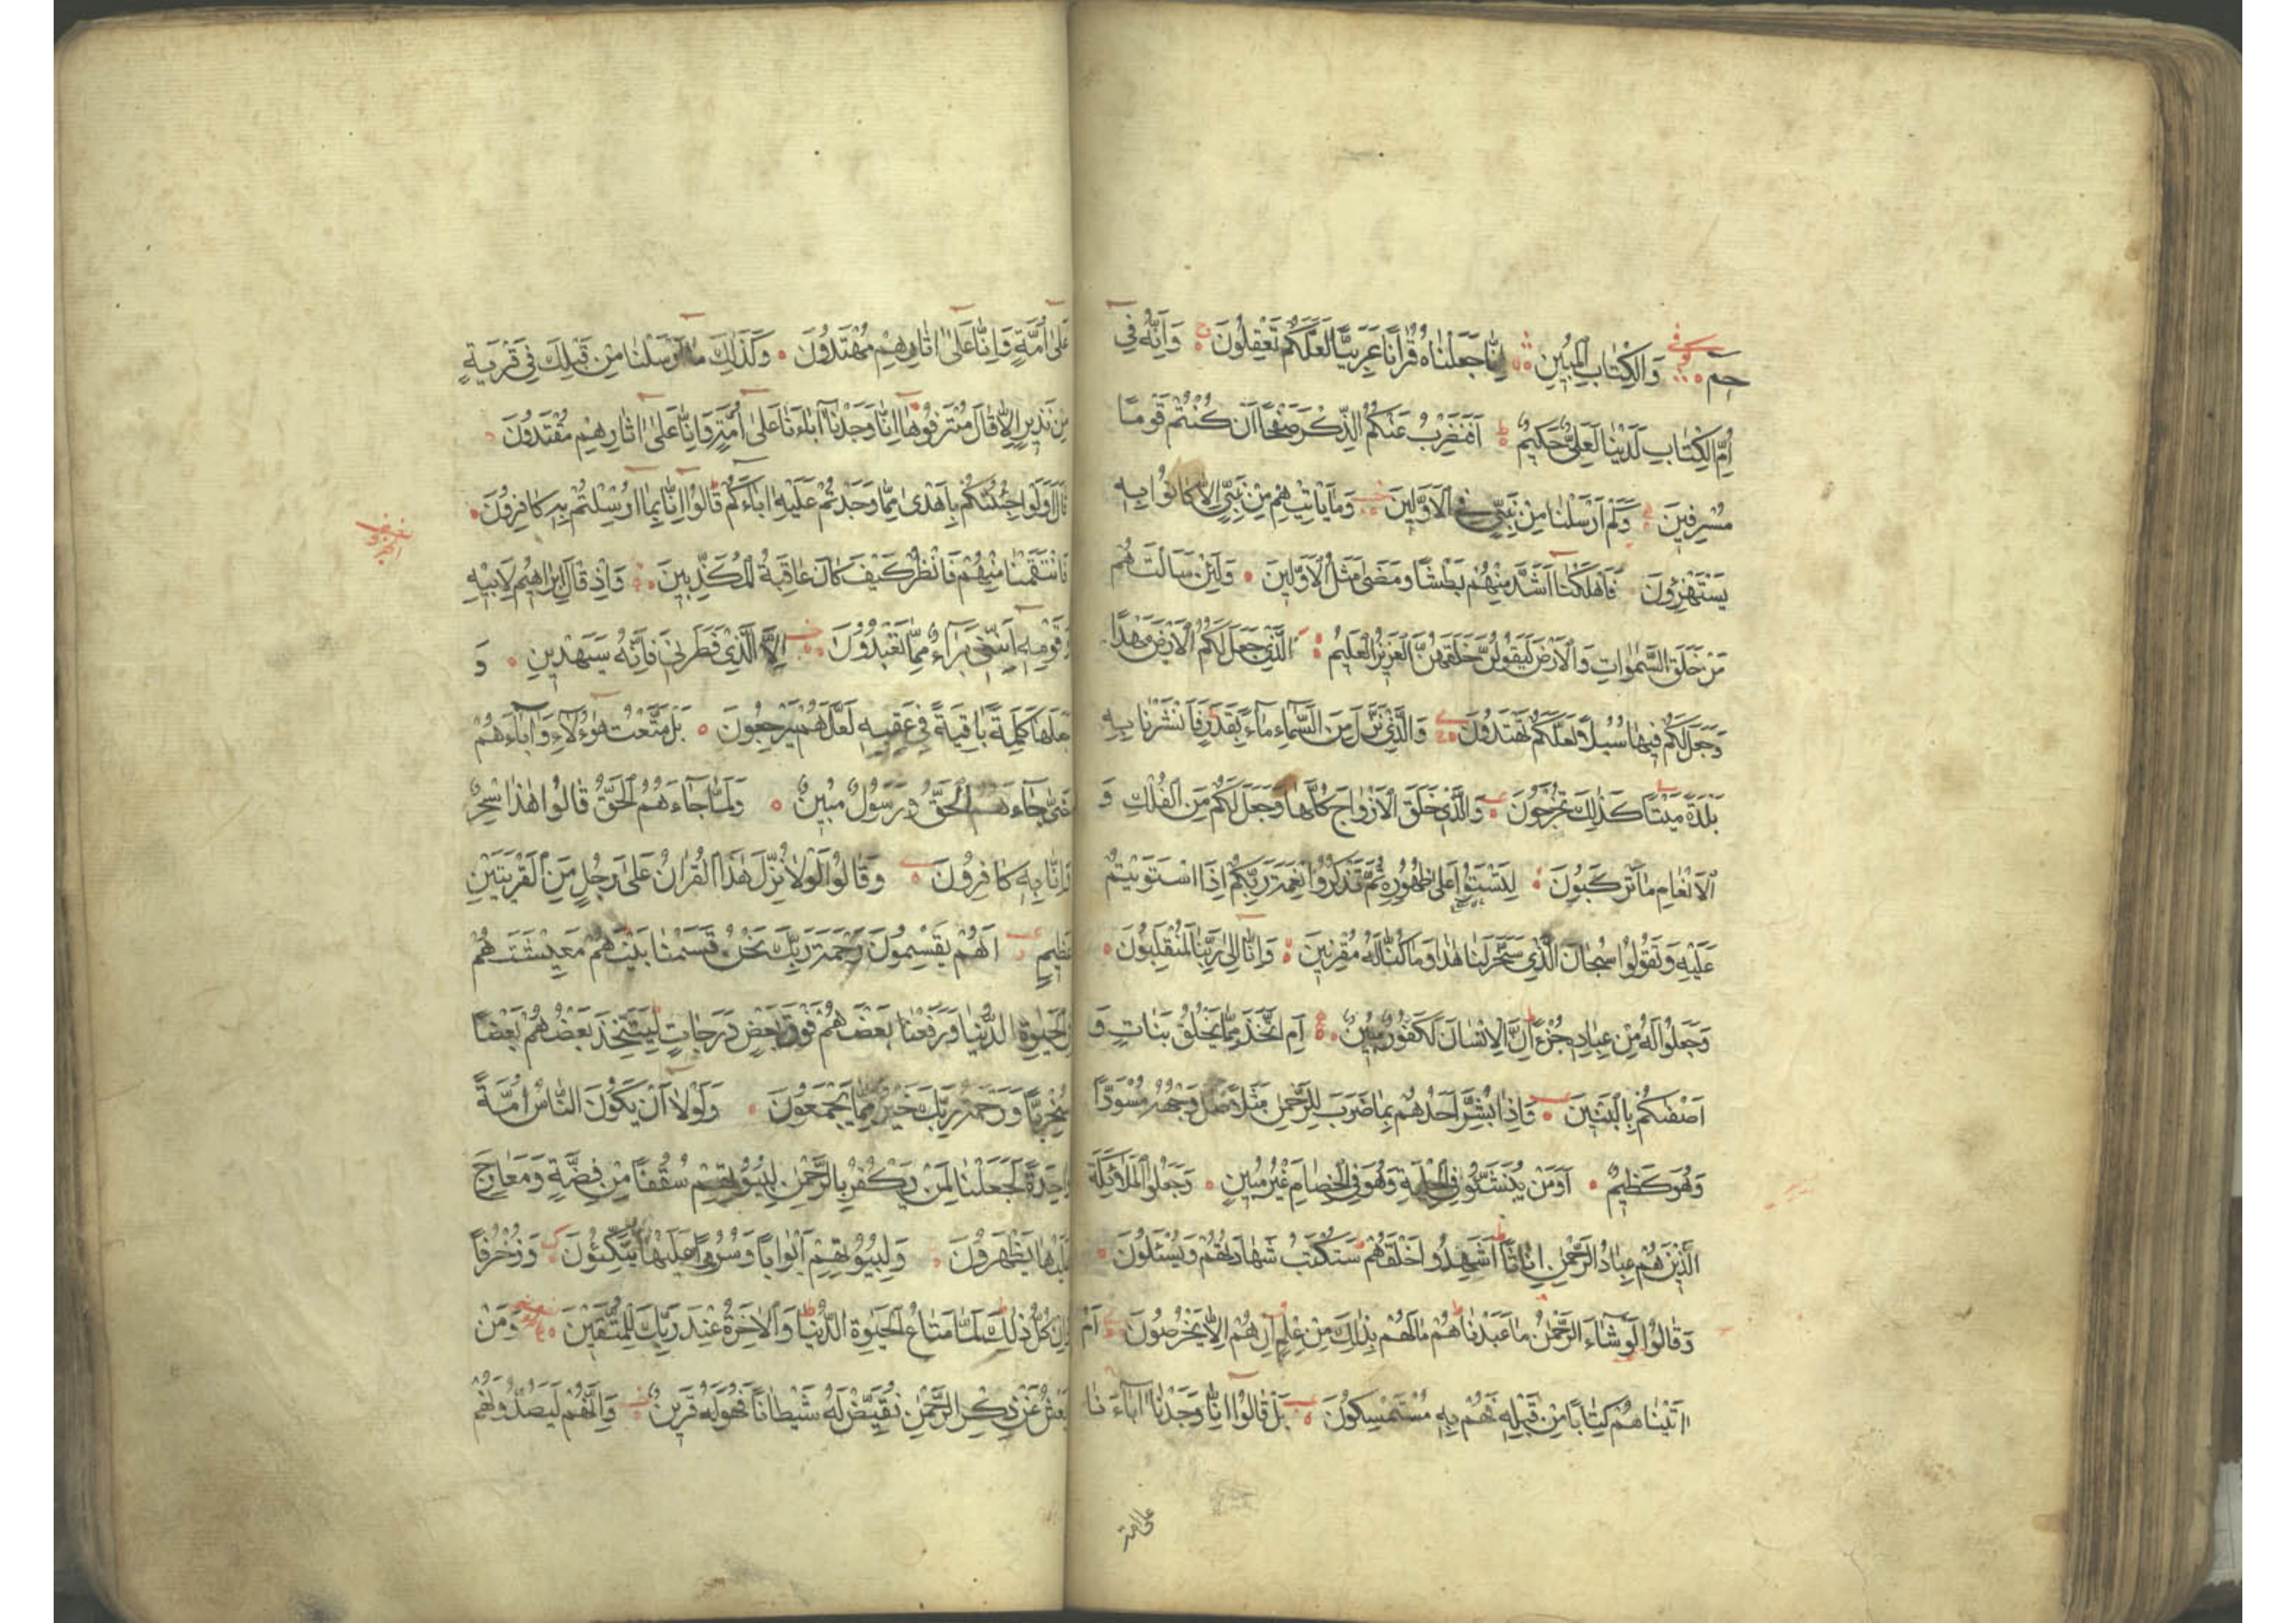 حم وَالْكِتَابِ الْمُبِينِ اِنَّا جَعَلْنَاهُ قُرْاٰنًا عَرَبِيًّا لَعَلَّكُمْ تَعْقِلُونَ وَاِنَّهُ فِي
اُمِّ الْكِتَابِ لَدَيْنَا لَعَلِيٌّ حَكِيمٌ اَفَنَضْرِبُ عَنْكُمُ الذِّكْرَ صَفْحًا اَنْ كُنْتُمْ قَوْمًا
مُسْرِفِينَ وَكَمْ اَرْسَلْنَا مِنْ نَبِيٍّ فِي الْاَوَّلِينَ وَمَا يَاْتِيهِمْ مِنْ نَبِيٍّ اِلَّا كَانُوا بِهِ
يَسْتَهْزِؤُنَ فَاَهْلَكْنَا اَشَدَّ مِنْهُمْ بَطْشًا وَمَضٰى مَثَلُ الْاَوَّلِينَ وَلَئِنْ سَاَلْتَهُمْ
مَنْ خَلَقَ السَّمٰوَاتِ وَالْاَرْضَ لَيَقُولُنَّ خَلَقَهُنَّ الْعَزِيزُ الْعَلِيمُ اَلَّذِي جَعَلَ لَكُمُ الْاَرْضَ مَهْدًا
وَجَعَلَ لَكُمْ فِيهَا سُبُلًا لَعَلَّكُمْ تَهْتَدُونَ وَالَّذِي نَزَّلَ مِنَ السَّمَاءِ مَاءً بِقَدَرٍ فَاَنْشَرْنَا بِهِ
بَلْدَةً مَيْتًا كَذٰلِكَ تُخْرَجُونَ وَالَّذِي خَلَقَ الْاَزْوَاجَ كُلَّهَا وَجَعَلَ لَكُمْ مِنَ الْفُلْكِ وَ
الْاَنْعَامِ مَا تَرْكَبُونَ لِتَسْتَوُا عَلٰى ظُهُورِهِ ثُمَّ تَذْكُرُوا نِعْمَةَ رَبِّكُمْ اِذَا اسْتَوَيْتُمْ
عَلَيْهِ وَتَقُولُوا سُبْحَانَ الَّذِي سَخَّرَ لَنَا هٰذَا وَمَا كُنَّا لَهُ مُقْرِنِينَ وَاِنَّا اِلٰى رَبِّنَا لَمُنْقَلِبُونَ
وَجَعَلُوا لَهُ مِنْ عِبَادِهِ جُزْءًا اِنَّ الْاِنْسَانَ لَكَفُورٌ مُبِينٌ اَمِ اتَّخَذَ مِمَّا يَخْلُقُ بَنَاتٍ وَ
اَصْفٰىكُمْ بِالْبَنِينَ وَاِذَا بُشِّرَ اَحَدُهُمْ بِمَا ضَرَبَ لِلرَّحْمٰنِ مَثَلًا ظَلَّ وَجْهُهُ مُسْوَدًّا
وَهُوَ كَظِيمٌ اَوَمَنْ يُنَشَّؤُا فِي الْحِلْيَةِ وَهُوَ فِي الْخِصَامِ غَيْرُ مُبِينٍ وَجَعَلُوا الْمَلٰٓئِكَةَ
الَّذِينَ هُمْ عِبَادُ الرَّحْمٰنِ اِنَاثًا اَشَهِدُوا خَلْقَهُمْ سَتُكْتَبُ شَهَادَتُهُمْ وَيُسْئَلُونَ
وَقَالُوا لَوْ شَاءَ الرَّحْمٰنُ مَا عَبَدْنَاهُمْ مَا لَهُمْ بِذٰلِكَ مِنْ عِلْمٍ اِنْ هُمْ اِلَّا يَخْرُصُونَ اَمْ
اٰتَيْنَاهُمْ كِتَابًا مِنْ قَبْلِهِ فَهُمْ بِهِ مُسْتَمْسِكُونَ بَلْ قَالُوا اِنَّا وَجَدْنَا اٰبَاءَنَا
على امة
عَلٰى اُمَّةٍ وَاِنَّا عَلٰى اٰثَارِهِمْ مُهْتَدُونَ وَكَذٰلِكَ مَا اَرْسَلْنَا مِنْ قَبْلِكَ فِي قَرْيَةٍ
مِنْ نَذِيرٍ اِلَّا قَالَ مُتْرَفُوهَا اِنَّا وَجَدْنَا اٰبَاءَنَا عَلٰى اُمَّةٍ وَاِنَّا عَلٰى اٰثَارِهِمْ مُقْتَدُونَ
قَالَ اَوَلَوْ جِئْتُكُمْ بِاَهْدٰى مِمَّا وَجَدْتُمْ عَلَيْهِ اٰبَاءَكُمْ قَالُوا اِنَّا بِمَا اُرْسِلْتُمْ بِهِ كَافِرُونَ
فَانْتَقَمْنَا مِنْهُمْ فَانْظُرْ كَيْفَ كَانَ عَاقِبَةُ الْمُكَذِّبِينَ وَاِذْ قَالَ اِبْرَاهِيمُ لِاَبِيهِ
وَقَوْمِهِ اِنَّنِي بَرَاءٌ مِمَّا تَعْبُدُونَ اِلَّا الَّذِي فَطَرَنِي فَاِنَّهُ سَيَهْدِينِ وَ
جَعَلَهَا كَلِمَةً بَاقِيَةً فِي عَقِبِهِ لَعَلَّهُمْ يَرْجِعُونَ بَلْ مَتَّعْتُ هٰؤُلَاءِ وَاٰبَاءَهُمْ
حَتّٰى جَاءَهُمُ الْحَقُّ وَرَسُولٌ مُبِينٌ وَلَمَّا جَاءَهُمُ الْحَقُّ قَالُوا هٰذَا سِحْرٌ
وَاِنَّا بِهِ كَافِرُونَ وَقَالُوا لَوْلَا نُزِّلَ هٰذَا الْقُرْاٰنُ عَلٰى رَجُلٍ مِنَ الْقَرْيَتَيْنِ
عَظِيمٍ اَهُمْ يَقْسِمُونَ رَحْمَةَ رَبِّكَ نَحْنُ قَسَمْنَا بَيْنَهُمْ مَعِيشَتَهُمْ
فِي الْحَيٰوةِ الدُّنْيَا وَرَفَعْنَا بَعْضَهُمْ فَوْقَ بَعْضٍ دَرَجَاتٍ لِيَتَّخِذَ بَعْضُهُمْ بَعْضًا
سُخْرِيًّا وَرَحْمَةُ رَبِّكَ خَيْرٌ مِمَّا يَجْمَعُونَ وَلَوْلَا اَنْ يَكُونَ النَّاسُ اُمَّةً
وَاحِدَةً لَجَعَلْنَا لِمَنْ يَكْفُرُ بِالرَّحْمٰنِ لِبُيُوتِهِمْ سُقُفًا مِنْ فِضَّةٍ وَمَعَارِجَ
عَلَيْهَا يَظْهَرُونَ وَلِبُيُوتِهِمْ اَبْوَابًا وَسُرُرًا عَلَيْهَا يَتَّكِئُونَ وَزُخْرُفًا
وَاِنْ كُلُّ ذٰلِكَ لَمَّا مَتَاعُ الْحَيٰوةِ الدُّنْيَا وَالْاٰخِرَةُ عِنْدَ رَبِّكَ لِلْمُتَّقِينَ وَمَنْ
يَعْشُ عَنْ ذِكْرِ الرَّحْمٰنِ نُقَيِّضْ لَهُ شَيْطَانًا فَهُوَ لَهُ قَرِينٌ وَاِنَّهُمْ لَيَصُدُّونَهُمْ